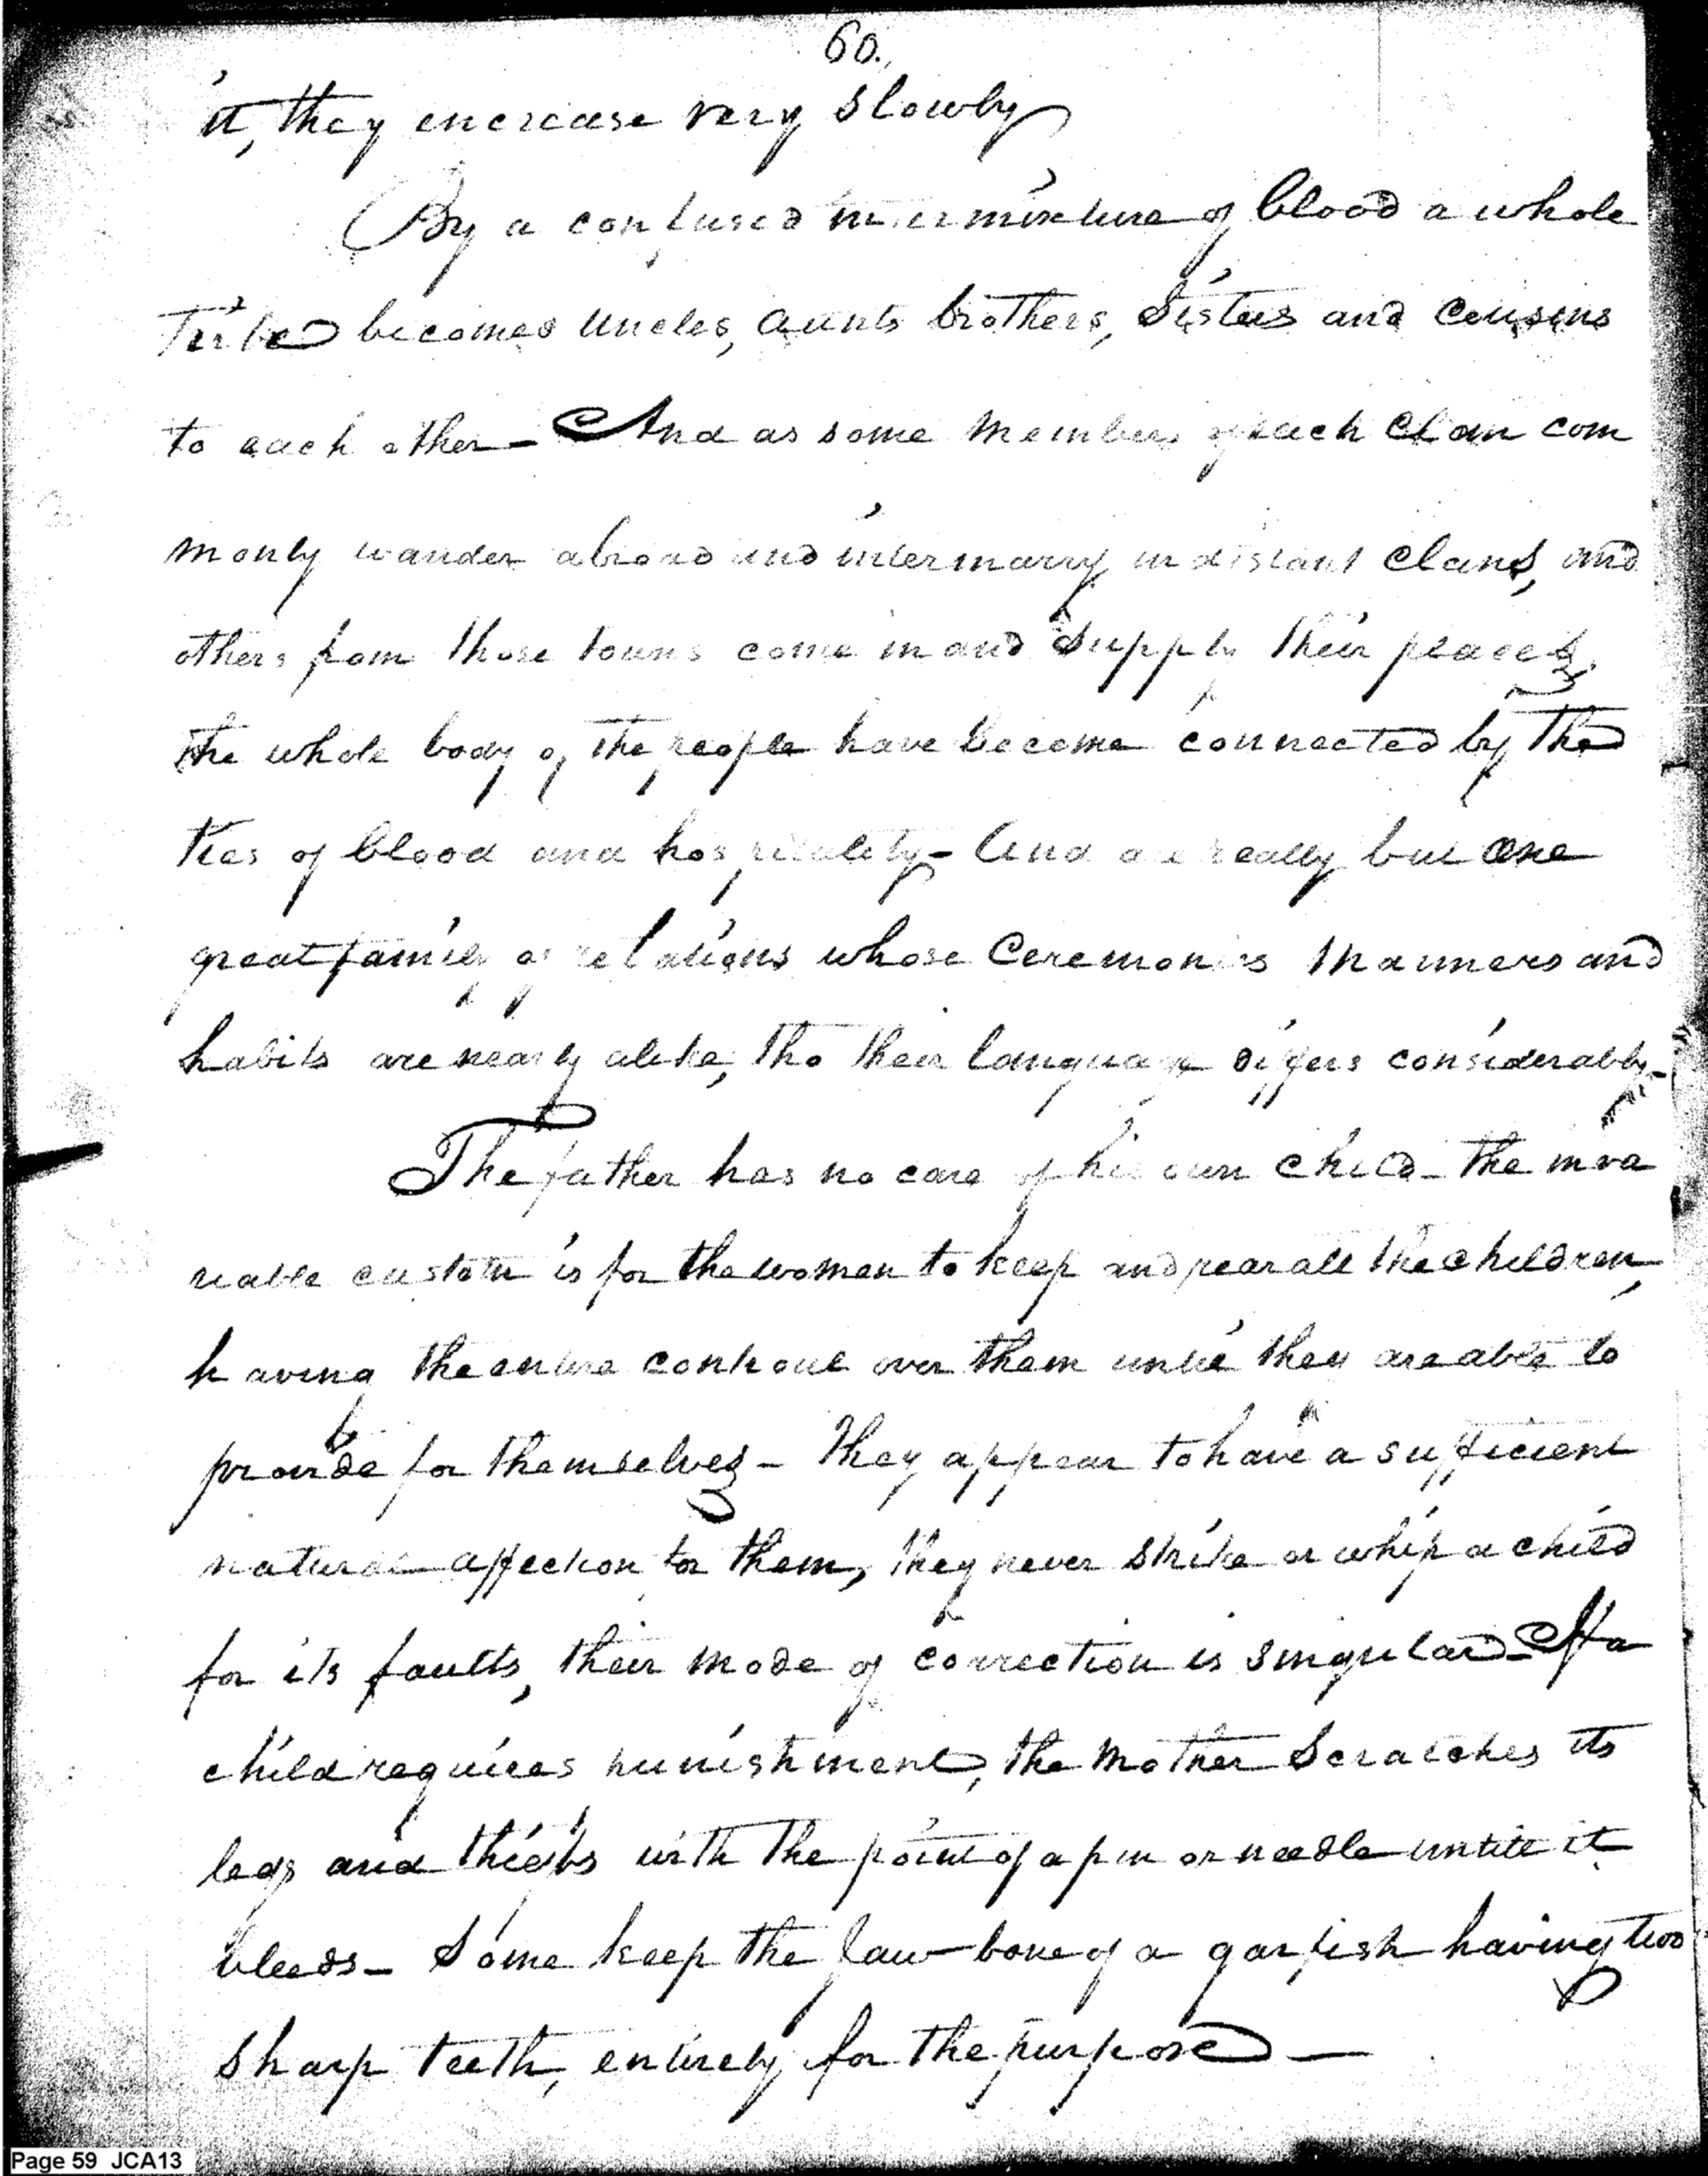 60.
it, they encrease very slowly
By a confused intermixture of blood a whole
Tribe becomes Uncles, Aunts brothers, Sisters and Cousins
to each other - And as some members of each Clan com
monly wander abroad and intermarry in distant Clans, and
others from those towns come in and supply their places,
the whole body of the people have become connected by the
ties of blood and hospitality - And are really but one
great family of relations whose Ceremonies Manners and
habits are nearly alike, tho their language differs considerably -
The father has no care of his own child - the inva
riable custom is for the women to keep and rear all the children,
having the entire controul over them until they are able to
provide for themselves - They appear to have a sufficient
natural affection for them, they never strike or whip a child
for its faults, their mode of correction is singular - If a
child requires punishment, the Mother Scratches its
legs and thighs with the point of a pin or needle untill it
bleeds - Some keep the Jaw-bone of a garfish having two
sharp teeth, entirely for the purpose -
Page 59 JCA13